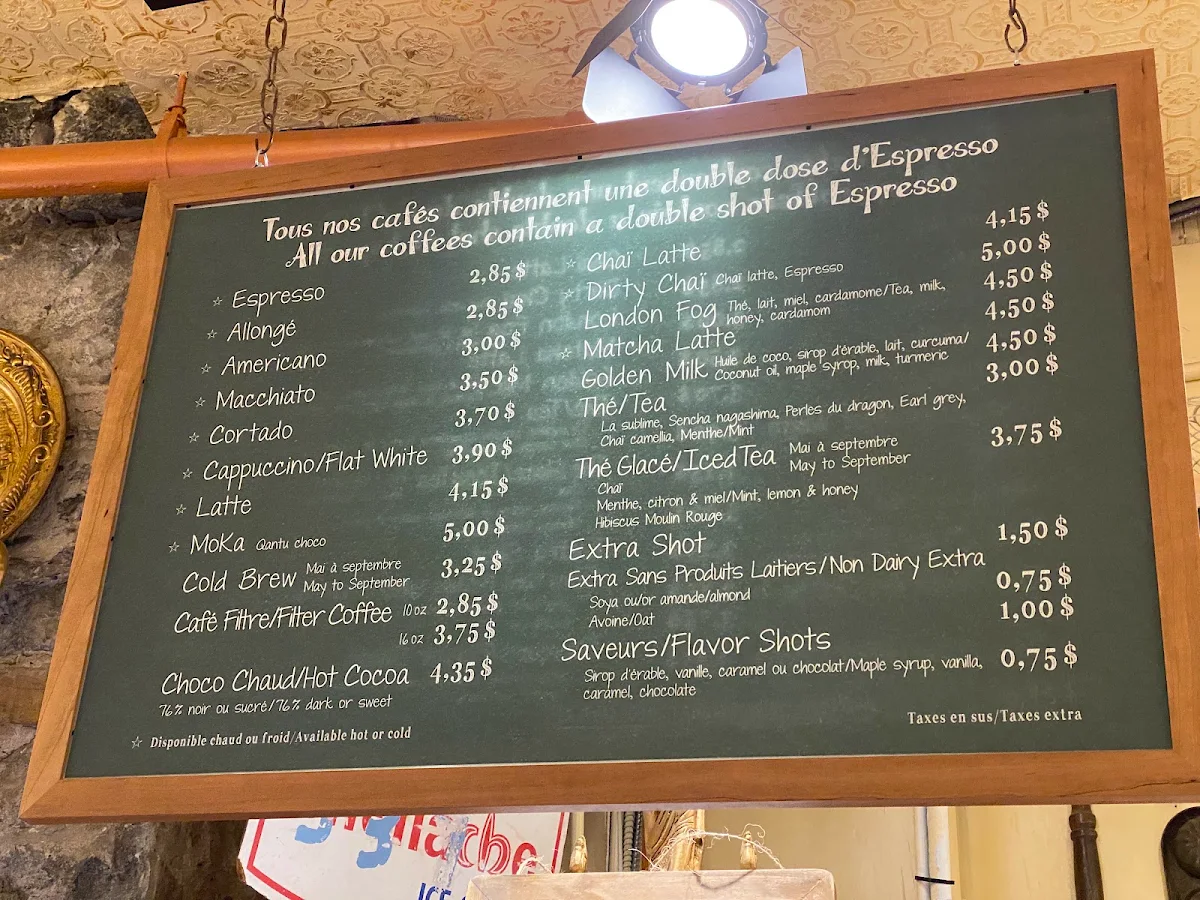 Tous nos cafés contiennent une double dose d'Espresso
All our coffees contain a double shot of Espresso
☆ Espresso 2,85 $
☆ Allongé 2,85 $
☆ Americano 3,00 $
☆ Macchiato 3,50 $
☆ Cortado 3,70 $
☆ Cappuccino/Flat White 3,90 $
☆ Latte 4,15 $
☆ Moka Qantu choco 5,00 $
Cold Brew Mai à septembre 3,25 $
May to September
Café Filtre/Filter Coffee 10 oz 2,85 $
16 oz 3,75 $
Choco Chaud/Hot Cocoa 4,35 $
76% noir ou sucré/76% dark or sweet
☆ Disponible chaud ou froid/Available hot or cold
☆ Chaï Latte 4,15 $
☆ Dirty Chaï Chaï latte, Espresso 5,00 $
London Fog Thé, lait, miel, cardamome/Tea, milk, 4,50 $
honey, cardamom
☆ Matcha Latte 4,50 $
Golden Milk Huile de coco, sirop d'érable, lait, curcuma/ 4,50 $
Coconut oil, maple syrup, milk, turmeric
Thé/Tea 3,00 $
La sublime, Sencha nagashima, Perles du dragon, Earl grey,
Chaï camellia, Menthe/Mint
Thé Glacé/Iced Tea Mai à septembre 3,75 $
May to September
Chaï
Menthe, citron & miel/Mint, lemon & honey
Hibiscus Moulin Rouge
Extra Shot 1,50 $
Extra Sans Produits Laitiers/Non Dairy Extra
Soya ou/or amande/almond 0,75 $
Avoine/Oat 1,00 $
Saveurs/Flavor Shots
Sirop d'érable, vanille, caramel ou chocolat/Maple syrup, vanilla, 0,75 $
caramel, chocolate
Taxes en sus/Taxes extra